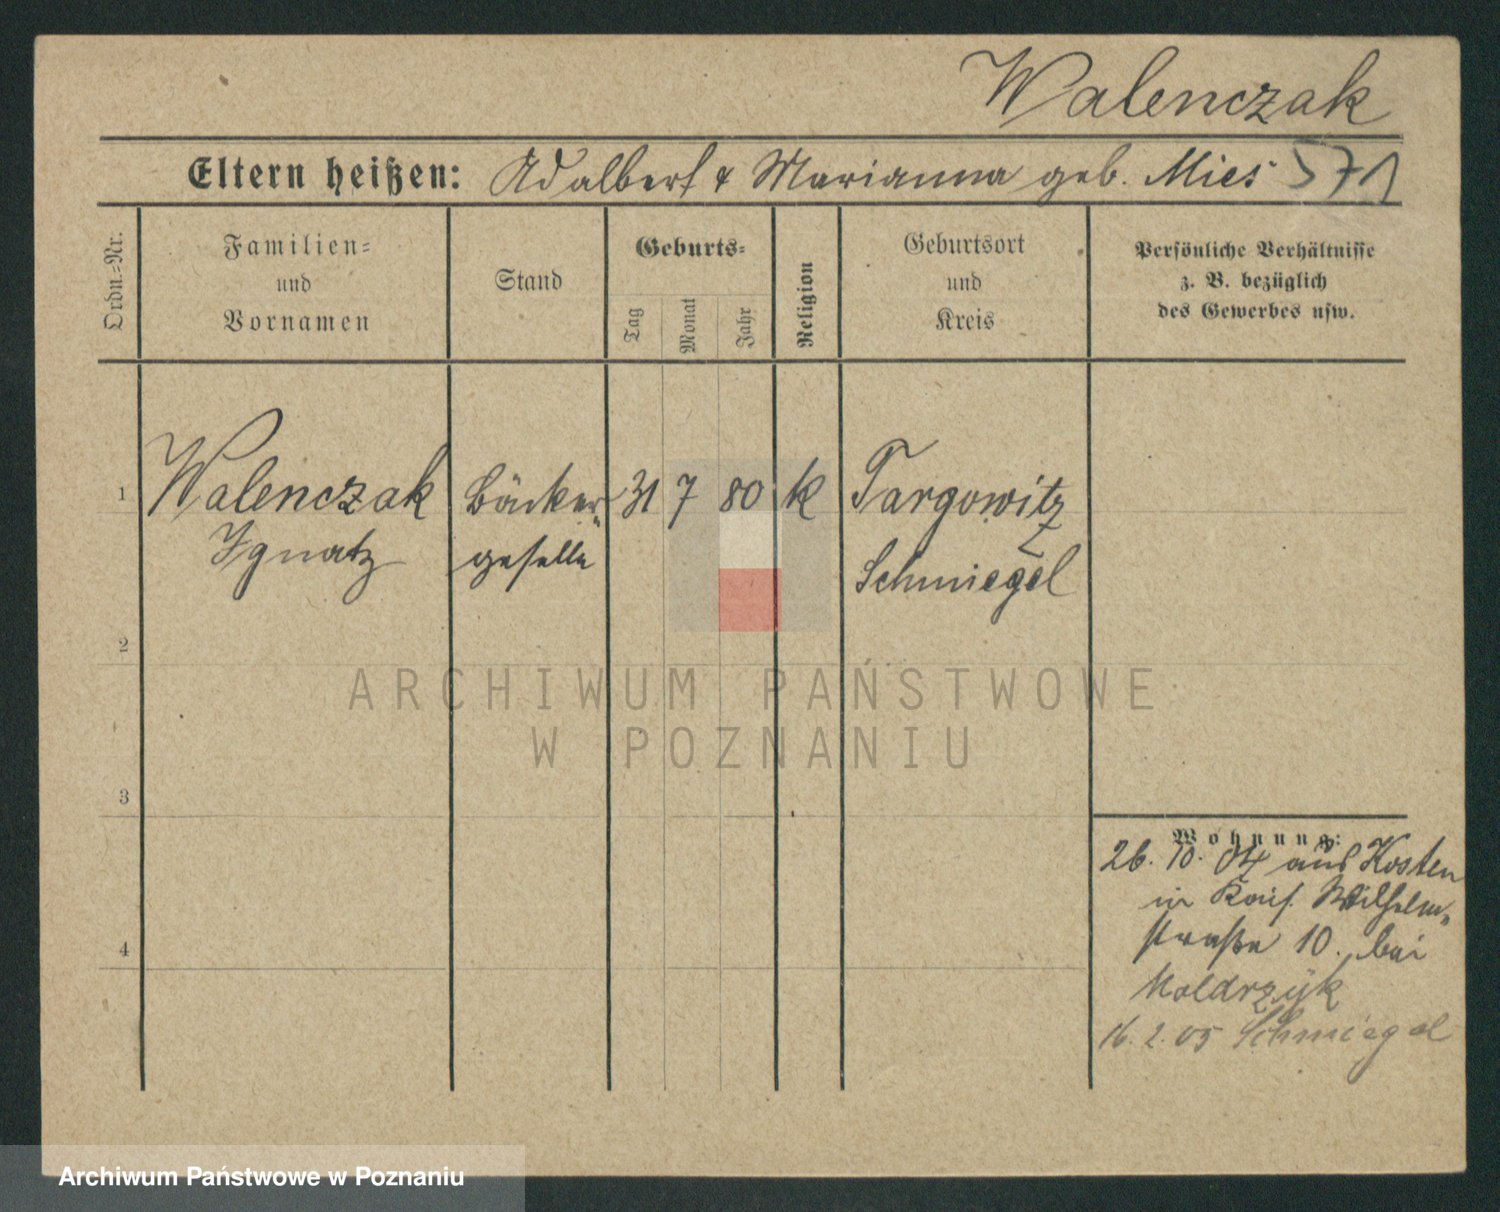 Walenczak
Eltern heißen: Adalbert & Marianna geb. Mies 571
Ordn.=Nr.
Familien=
und
Vornamen
Stand
Geburts=
Tag
Monat
Jahr
Religion
Geburtsort
und
Kreis
Persönliche Verhältnisse
z. B. bezüglich
des Gewerbes usw.
1 Walenczak Bäcker= 31 7 80 k Targowitz
Ignatz geselle Schmiegel
2
3
4
Wohnung:
26. 10. 04 aus Kosten
in Kais. Wilhelm=
straße 10. bei
Moldrzyk
16. 2. 05 Schmiegel
ARCHIWUM PAŃSTWOWE
W POZNANIU
Archiwum Państwowe w Poznaniu